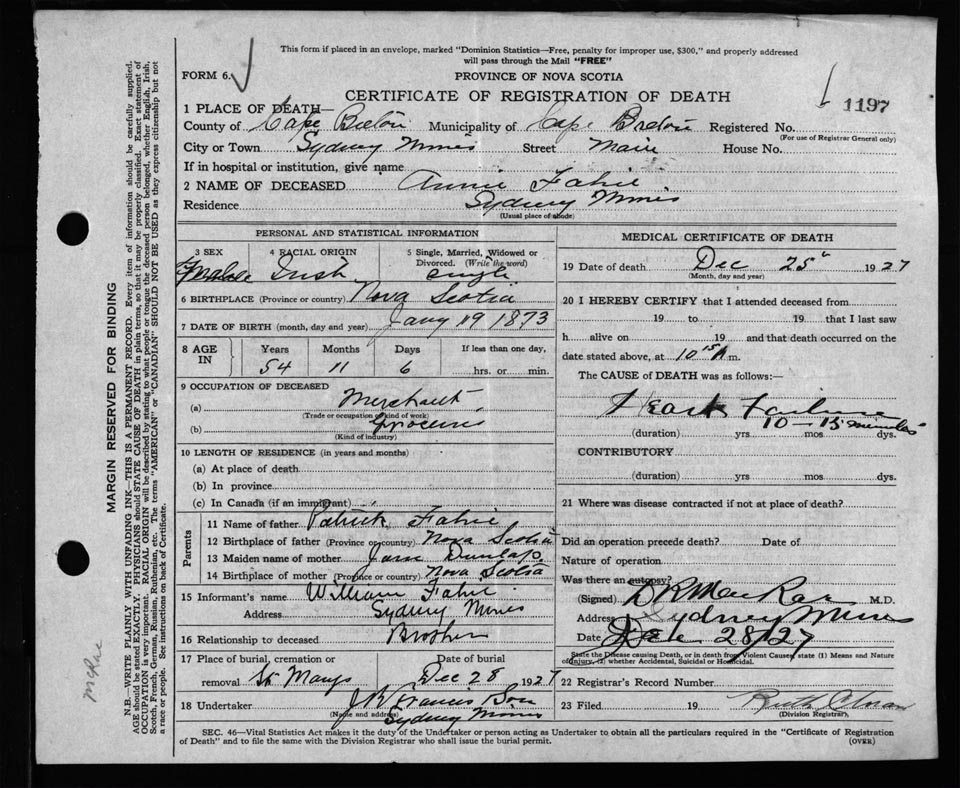 This form if placed in an envelope, marked "Dominion Statistics—Free, penalty for improper use, $300," and properly addressed
will pass through the Mail "FREE"
FORM 6.
PROVINCE OF NOVA SCOTIA
CERTIFICATE OF REGISTRATION OF DEATH
1197
1 PLACE OF DEATH—
County of Cape Breton Municipality of Cape Breton Registered No.
(For use of Registrar General only)
City or Town Sydney Mines Street Main House No.
If in hospital or institution, give name
2 NAME OF DECEASED Annie Fahie
Residence Sydney Mines
(Usual place of abode)
PERSONAL AND STATISTICAL INFORMATION
3 SEX 4 RACIAL ORIGIN 5 Single, Married, Widowed or
Divorced. (Write the word)
Female Irish single
6 BIRTHPLACE (Province or country) Nova Scotia
7 DATE OF BIRTH (month, day and year) Jany 19 1873
8 AGE IN Years Months Days If less than one day,
54 11 6 hrs. or min.
9 OCCUPATION OF DECEASED
(a) Merchant
(Trade or occupation or kind of work)
(b) Groceries
(Kind of industry)
10 LENGTH OF RESIDENCE (in years and months)
(a) At place of death
(b) In province
(c) In Canada (if an immigrant)
Parents
11 Name of father Patrick Fahie
12 Birthplace of father (Province or country) Nova Scotia
13 Maiden name of mother Jane Dunlap
14 Birthplace of mother (Province or country) Nova Scotia
15 Informant's name William Fahie
Address Sydney Mines
16 Relationship to deceased Brother
17 Place of burial, cremation or Date of burial
removal St Marys Dec 28 1927
18 Undertaker J W Francis Son
(Name and address) Sydney Mines
MEDICAL CERTIFICATE OF DEATH
19 Date of death Dec 25th 1927
(Month, day and year)
20 I HEREBY CERTIFY that I attended deceased from
19 to 19 that I last saw
h alive on 19 and that death occurred on the
date stated above, at 10 15 A m.
The CAUSE of DEATH was as follows:
Heart Failure
10 - 15 minutes
(duration) yrs mos dys.
CONTRIBUTORY
(duration) yrs mos dys.
21 Where was disease contracted if not at place of death?
Did an operation precede death? Date of
Nature of operation
Was there an autopsy?
(Signed) D R MacRae M.D.
Address Sydney Mines
Date Dec 28/27
State the Disease causing Death, or in death from Violent Causes, state (1) Means and Nature
of Injury, (2) whether Accidental, Suicidal or Homicidal.
22 Registrar's Record Number
23 Filed 19 Ruth
(Division Registrar)
SEC. 46—Vital Statistics Act makes it the duty of the Undertaker or person acting as Undertaker to obtain all the particulars required in the "Certificate of Registration
of Death" and to file the same with the Division Registrar who shall issue the burial permit.
(OVER)
MARGIN RESERVED FOR BINDING
N.B.—WRITE PLAINLY WITH UNFADING INK—THIS IS A PERMANENT RECORD. Every item of information should be carefully supplied.
AGE should be stated EXACTLY. PHYSICIANS should STATE CAUSE OF DEATH in plain terms, so that it may be properly classified. Exact statement of
OCCUPATION is very important. RACIAL ORIGIN will be described by stating to what people or tongue the deceased person belonged, whether English, Irish,
Scotch, French, German, Russian, Ruthenian, etc. The terms "AMERICAN" or "CANADIAN" SHOULD NOT BE USED as they express citizenship but not
a race or people. See instructions on back of Certificate.
McRae